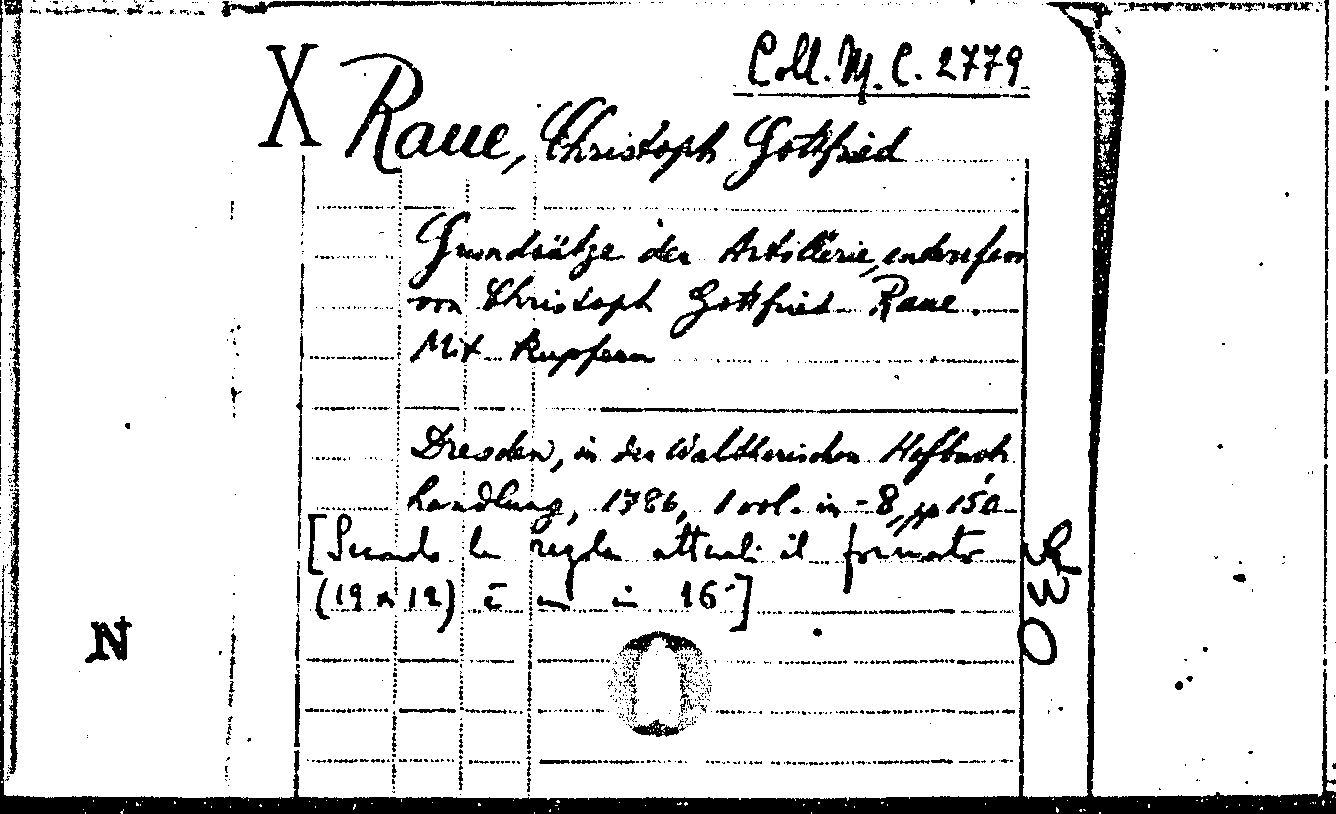 Coll. M. C. 2779
X Raue, Christoph Gottfried
Grundsätze der Artillerie, entworfen
von Christoph Gottfried Raue.
Mit Kupfern
Dresden, in der Waltherischen Hofbuch
handlung, 1786, 1 vol. in-8, pp 150
[Secondo le regole attuali il formato
(19 x 12) è un in 16°]
N